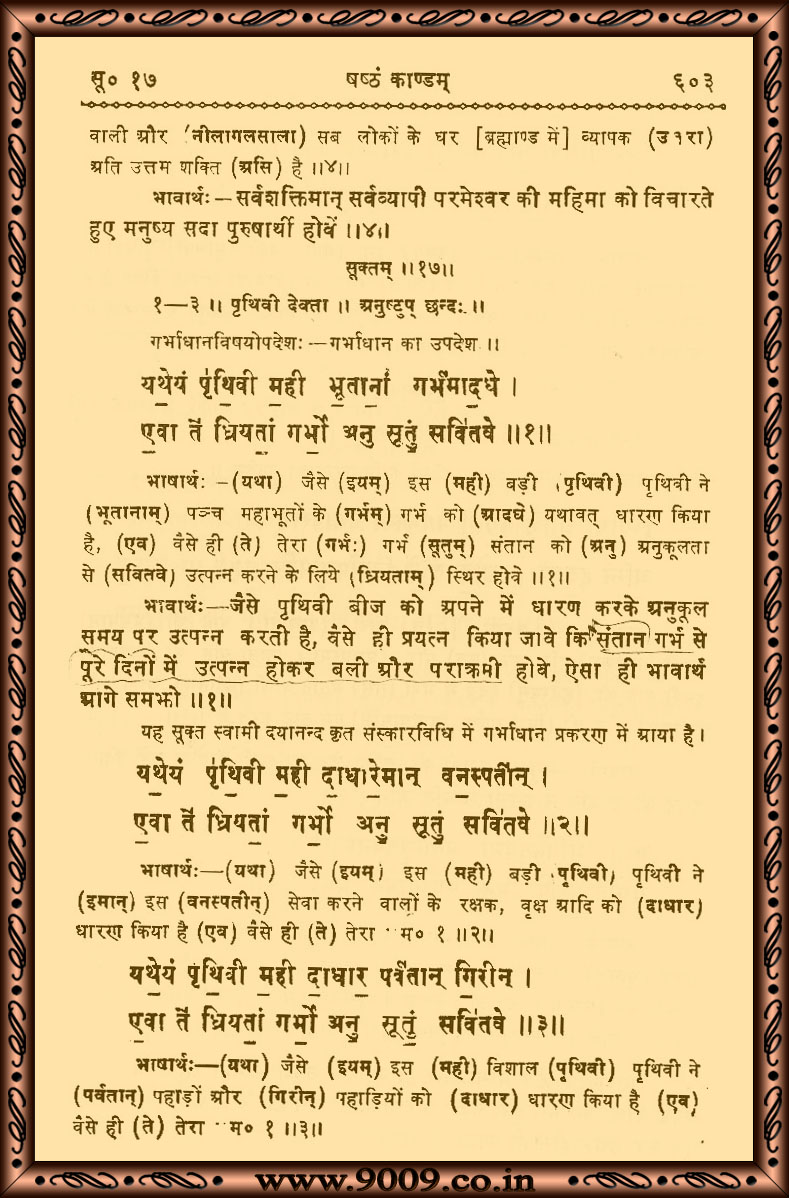 सू० १७ षष्ठं काण्डम् ६०३
वाली और (नीलागलसाला) सब लोकों के घर [ब्रह्माण्ड में] व्यापक
अति उत्तम शक्ति (असि) है ॥४॥
भावार्थः—सर्वशक्तिमान् सर्वव्यापी परमेश्वर की महिमा को विचारते
हुए मनुष्य सदा पुरुषार्थी होवें ॥४॥
सूक्तम् ॥१७॥
१—३ ॥ पृथिवी देवता ॥ अनुष्टुप् छन्दः ॥
गर्भाधानविषयोपदेशः—गर्भाधान का उपदेश ॥
यथे॒यं पृ॑थि॒वी म॒ही भू॒तानां॒ गर्भ॑माद॒धे ।
ए॒वा ते॑ ध्रियतां॒ गर्भो॒ अनु॒ सूतुं॒ सवि॑तवे ॥१॥
भाषार्थः—(यथा) जैसे (इयम्) इस (मही) बड़ी (पृथिवी) पृथिवी ने
(भूतानाम्) पञ्च महाभूतों के (गर्भम्) गर्भ को (आदधे) यथावत् धारण किया
है, (एव) वैसे ही (ते) तेरा (गर्भः) गर्भ (सूतुम्) संतान को (अनु) अनुकूलता
से (सवितवे) उत्पन्न करने के लिये (ध्रियताम्) स्थिर होवे ॥१॥
भावार्थः—जैसे पृथिवी बीज को अपने में धारण करके अनुकूल
समय पर उत्पन्न करती है, वैसे ही प्रयत्न किया जावे कि संतान गर्भ से
पूरे दिनों में उत्पन्न होकर बली और पराक्रमी होवे, ऐसा ही भावार्थ
आगे समझो ॥१॥
यह सूक्त स्वामी दयानन्द कृत संस्कारविधि में गर्भाधान प्रकरण में आया है।
यथे॒यं पृ॑थि॒वी म॒ही दा॒धारे॒मान् वन॒स्पती॑न् ।
ए॒वा ते॑ ध्रियतां॒ गर्भो॒ अनु॒ सूतुं॒ सवि॑तवे ॥२॥
भाषार्थः—(यथा) जैसे (इयम्) इस (मही) बड़ी (पृथिवी) पृथिवी ने
(इमान्) इस (वनस्पतीन्) सेवा करने वालों के रक्षक, वृक्ष आदि को (दाधार)
धारण किया है (एव) वैसे ही (ते) तेरा ··म० १ ॥२॥
यथे॒यं पृ॑थि॒वी म॒ही दा॒धार॒ पर्व॑तान् गि॒रीन् ।
ए॒वा ते॑ ध्रियतां॒ गर्भो॒ अनु॒ सूतुं॒ सवि॑तवे ॥३॥
भाषार्थः—(यथा) जैसे (इयम्) इस (मही) विशाल (पृथिवी) पृथिवी ने
(पर्वतान्) पहाड़ों और (गिरीन्) पहाड़ियों को (दाधार) धारण किया है (एव)
वैसे ही (ते) तेरा ··म० १ ॥३॥
www.9009.co.in